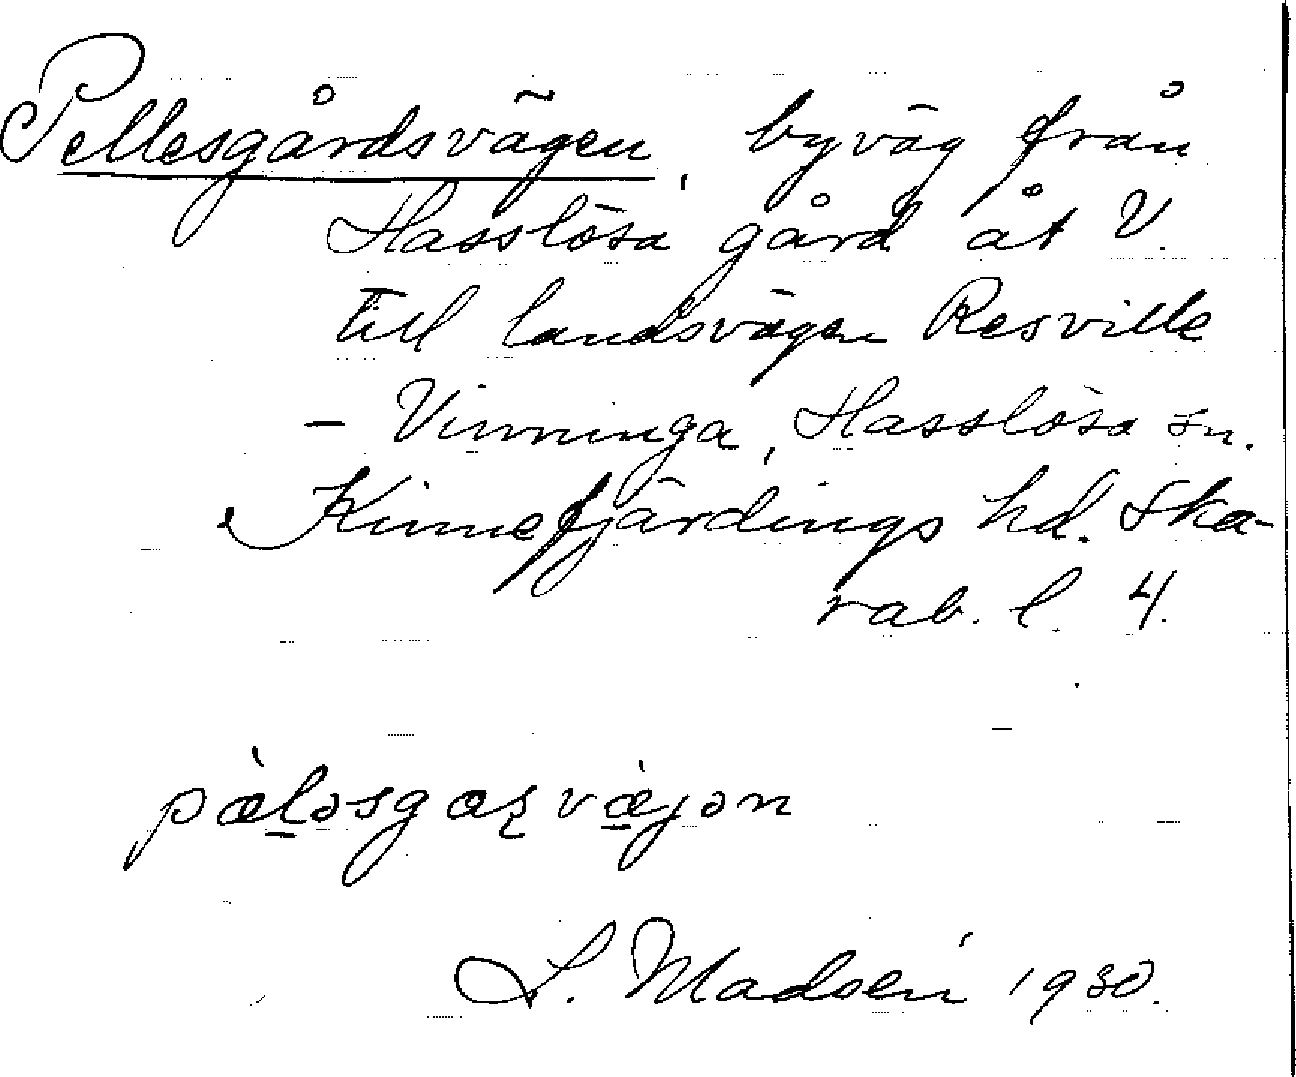 Pellesgårdsvägen, byväg från
Hasslösa gård åt V.
till landsvägen Resville
– Vinninga, Hasslösa sn.
Kinnefjärdings hd. Ska-
rab. l. 4.
pæ̀ḻəsgaʂvæ̀jən
S. Madsén 1930.